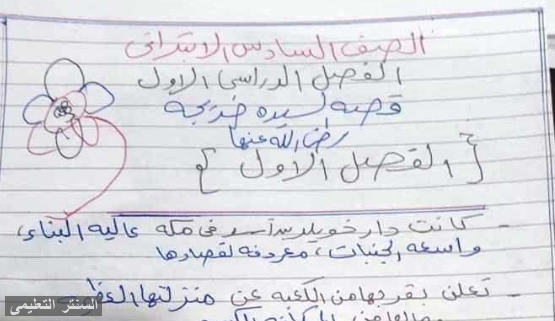 الصف السادس الابتدائى
الفصل الدراسى الاول
قصة السيده خديجه
رضى الله عنها
[الفصل الاول]
- كانت دار خويلد بن أسد فى مكه عاليه البناء،
واسعه الجنبات، معروفه لقصادها
- تعلن بقربها من الكعبه عن منزلتها
السنتر التعليمى